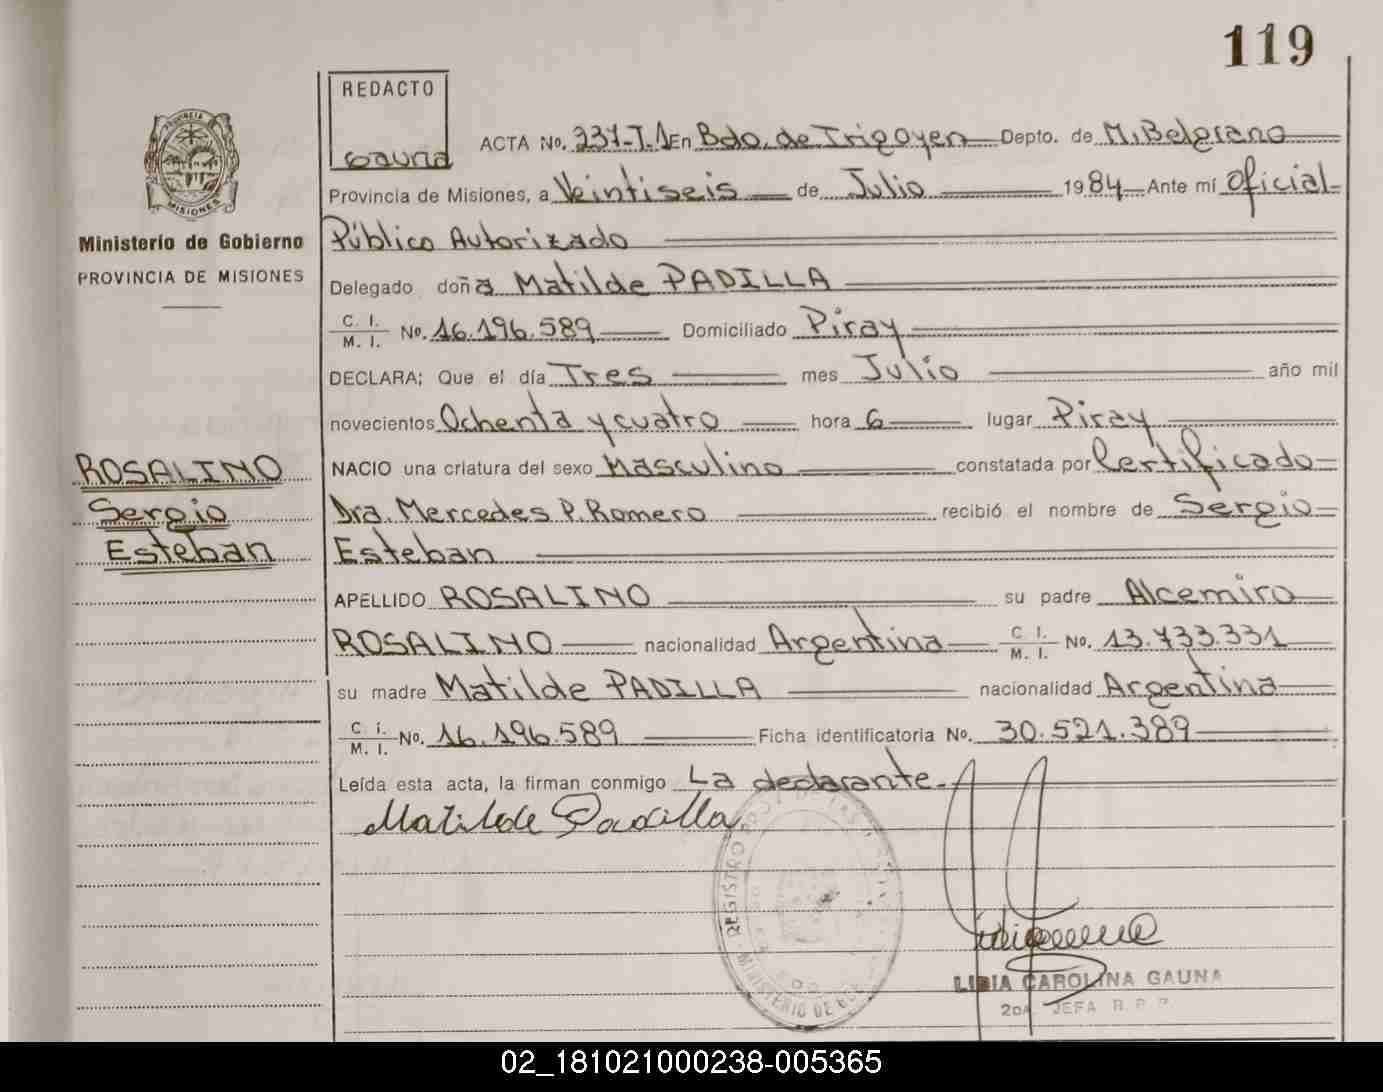 119
REDACTO
Gauna
PROVINCIA DE
MISIONES
Ministerio de Gobierno
PROVINCIA DE MISIONES
ROSALINO
Sergio
Esteban
ACTA No. 237-T.1 En Bdo. de Irigoyen Depto. de M. Belgrano
Provincia de Misiones, a Veintiseis de Julio 1984 Ante mí Oficial
Público Autorizado
Delegado doña Matilde PADILLA
C. I. M. I. No. 16.196.589 Domiciliado Piray
DECLARA; Que el día Tres mes Julio año mil
novecientos Ochenta y cuatro hora 6 lugar Piray
NACIO una criatura del sexo Masculino constatada por Certificado
Dra. Mercedes P. Romero recibió el nombre de Sergio
Esteban
APELLIDO ROSALINO su padre Alcemiro
ROSALINO nacionalidad Argentina C. I. M. I. No. 13.733.331
su madre Matilde PADILLA nacionalidad Argentina
C. i. M. I. No. 16.196.589 Ficha identificatoria No. 30.521.389
Leída esta acta, la firman conmigo La declarante.
Matilde Padilla
REGISTRO PROV. DE LAS
MINISTERIO DE GOB
LIBIA CAROLINA GAUNA
2da. JEFA R. P. P.
02_181021000238-005365